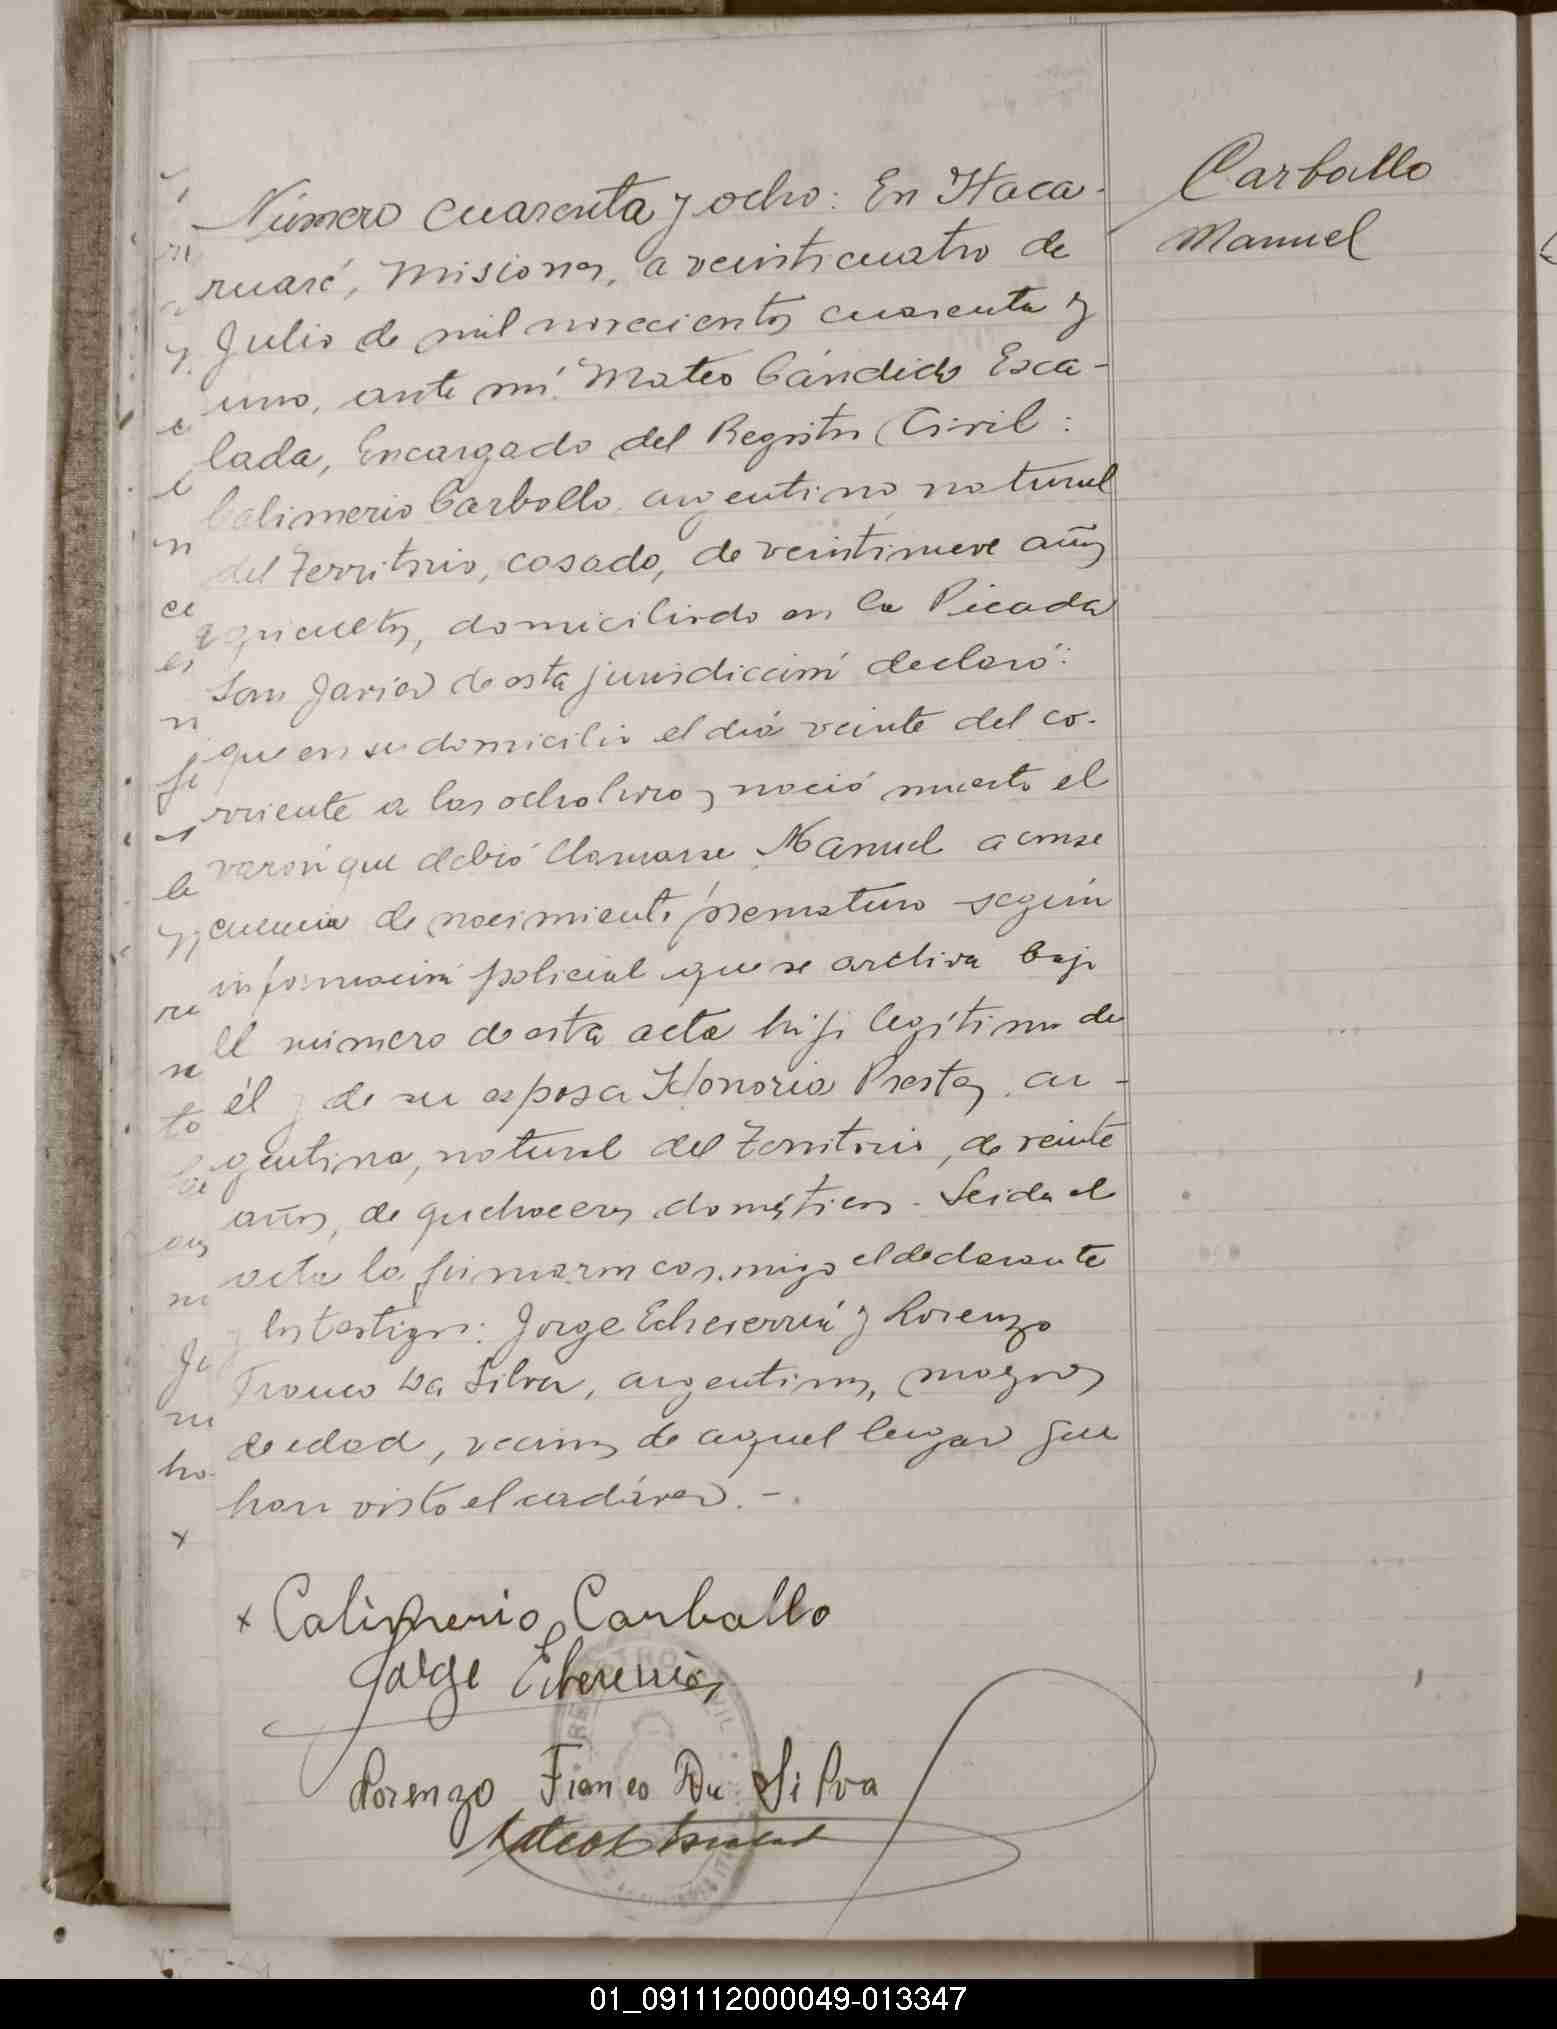 Carballo
Manuel
Número cuarenta y ocho: En Itaca-
ruaré, Misiones, a veinticuatro de
Julio de mil novecientos cuarenta y
uno, ante mí Mateo Cándido Esca-
lada, Encargado del Registro Civil:
Calimerio Carballo, argentino natural
del Territorio, casado, de veintinueve años
agricultor, domiciliado en la Picada
San Javier de esta jurisdicción declaró:
que en su domicilio el día veinte del co-
rriente a las ocho horas nació muerto el
varón que debió llamarse Manuel a conse
cuencia de nacimiento prematuro según
información policial que se archiva bajo
el número de esta acta hijo legítimo de
él y de su esposa Honoria Prestes, ar-
gentina, natural del Territorio, de veinte
años, de quehaceres domésticos. Leida el
acta la firmaron conmigo el declarante
y los testigos: Jorge Echeverría y Lorenzo
Franco Da Silva, argentinos, mayores
de edad, vecinos de aquel lugar que
han visto el cadáver. -.
x Calimerio Carballo
Jorge Echeverria
Lorenzo Franco Da Silva
REGISTRO CIVIL
01_091112000049-013347